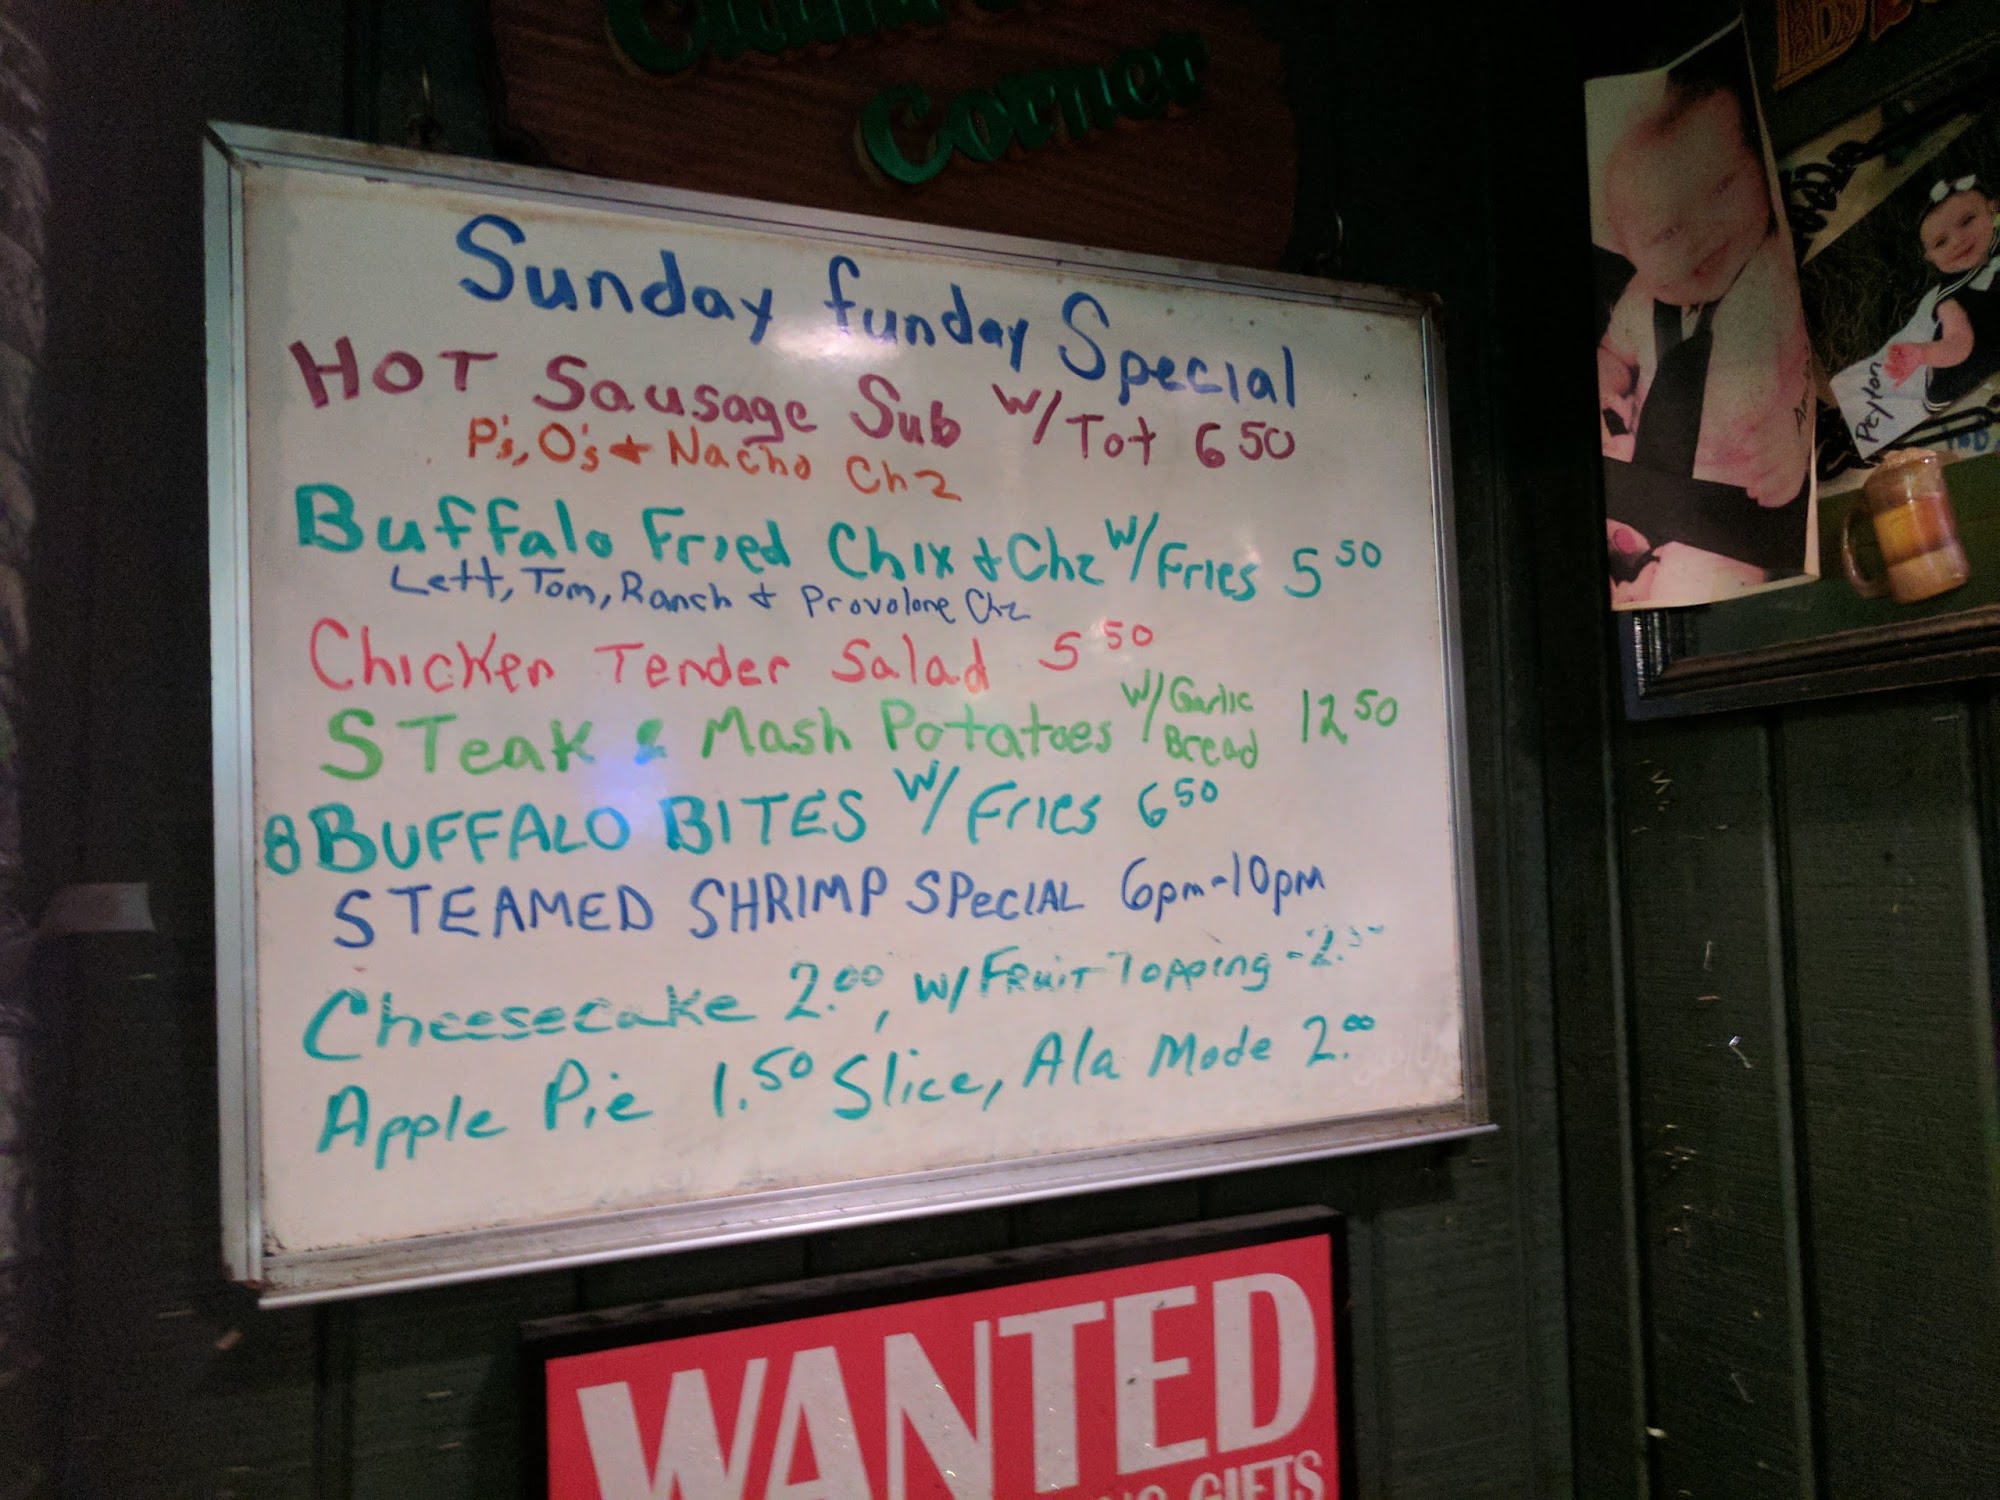 Corner
Sunday funday Special
HOT Sausage Sub w/ Tot 6 50
P's, O's + Nacho Chz
Buffalo Fried Chix + Chz w/ Fries 5 50
Lett, Tom, Ranch + Provolone Chz
Chicken Tender Salad 5 50
STeak & Mash Potatoes w/ Garlic Bread 12 50
8 BUFFALO BITES w/ Fries 6 50
STEAMED SHRIMP SPECIAL 6pm-10pm
Cheesecake 2.00, w/ FRuiT Topping -2.
Apple Pie 1.50 Slice, Ala Mode 2.00
WANTED
GIFTS
Peyton